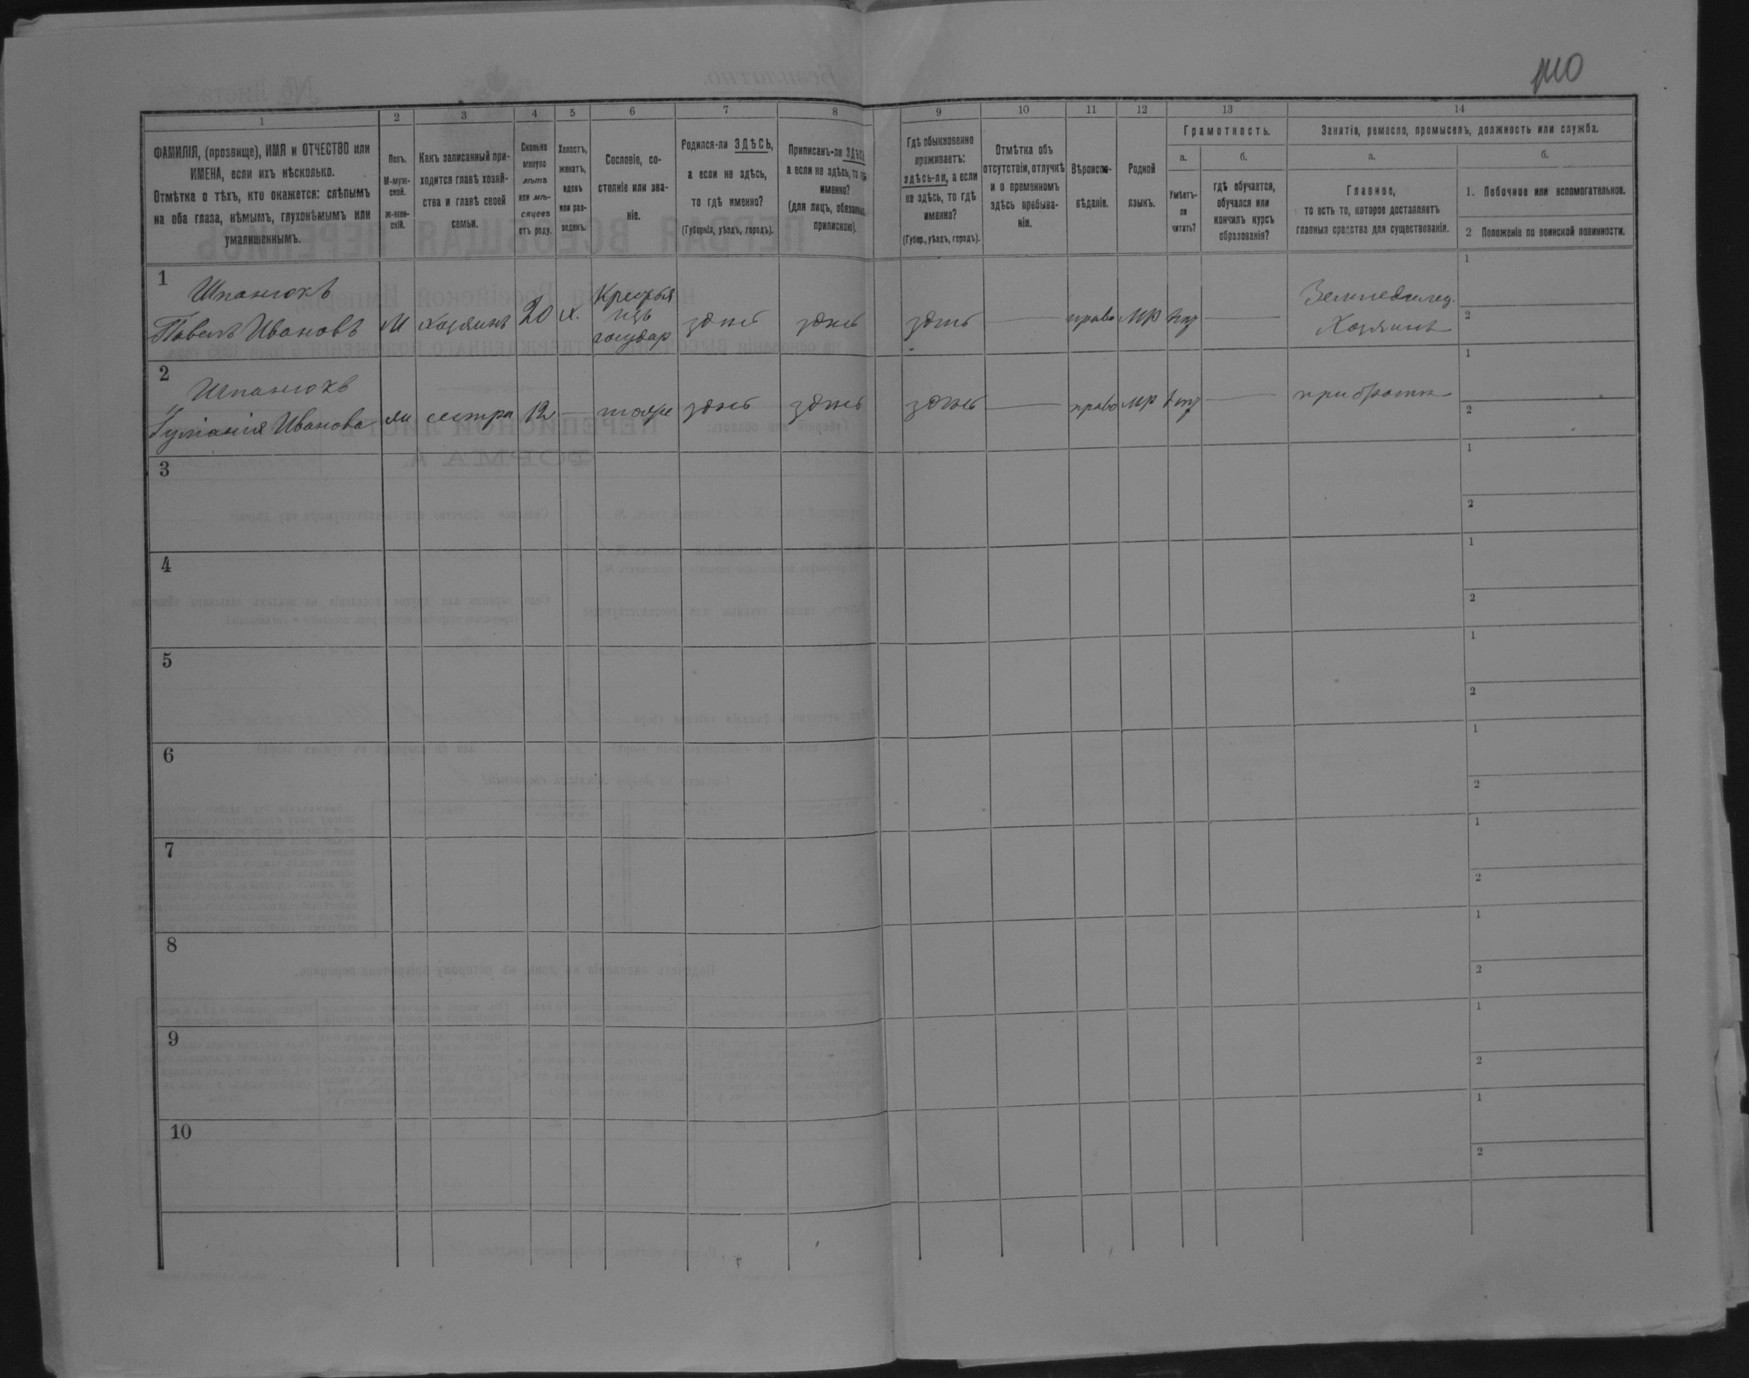 1
2
3
4
5
6
7
8
9
10
11
12
13
14
ФАМИЛІЯ, (прозвище), ИМЯ и ОТЧЕСТВО или
ИМЕНА, если ихъ нѣсколько.
Отмѣтка о тѣхъ, кто окажется: слѣпымъ
на оба глаза, нѣмымъ, глухонѣмымъ или
умалишеннымъ.
Полъ.
М-муж-
ской.
Ж-жен-
скій.
Какъ записанный при-
ходится главѣ хозяй-
ства и главѣ своей
семьи.
Сколько
минуло
лѣтъ
или мѣ-
сяцевъ
отъ роду.
Холостъ,
женатъ,
вдовъ
или раз-
веденъ.
Сословіе, со-
стояніе или зва-
ніе.
Родился-ли ЗДѢСЬ,
а если не здѣсь,
то гдѣ именно?
(Губернія, уѣздъ, городъ).
Приписанъ-ли ЗДѢСЬ,
а если не здѣсь, то гдѣ
именно?
(для лицъ, обязанныхъ
припискою).
Гдѣ обыкновенно
проживаетъ:
здѣсь-ли, а если
не здѣсь, то гдѣ
именно?
(Губер., уѣздъ, городъ).
Отмѣтка объ
отсутствіи, отлучкѣ
и о временномъ
здѣсь пребыва-
ніи.
Вѣроиспо-
вѣданіе.
Родной
языкъ.
Грамотность.
а.
Умѣетъ-
ли
читать?
б.
гдѣ обучается,
обучался или
кончилъ курсъ
образованія?
Занятіе, ремесло, промыселъ, должность или служба.
а.
Главное,
то есть то, которое доставляетъ
главныя средства для существованія.
б.
1. Побочное или вспомогательное.
2 Положеніе по воинской повинности.
1
Шпанюкъ
Павелъ Ивановъ М хозяинъ 20 х. Крестья
изъ
государ здѣсь здѣсь здѣсь — право МР — Земледѣлец.
Хозяинъ
1
2
2
Шпанюкъ
Иванова сестра 12 — тоже здѣсь здѣсь здѣсь — право МР — при братѣ
1
2
3
1
2
4
1
2
5
1
2
6
1
2
7
1
2
8
1
2
9
1
2
10
1
2